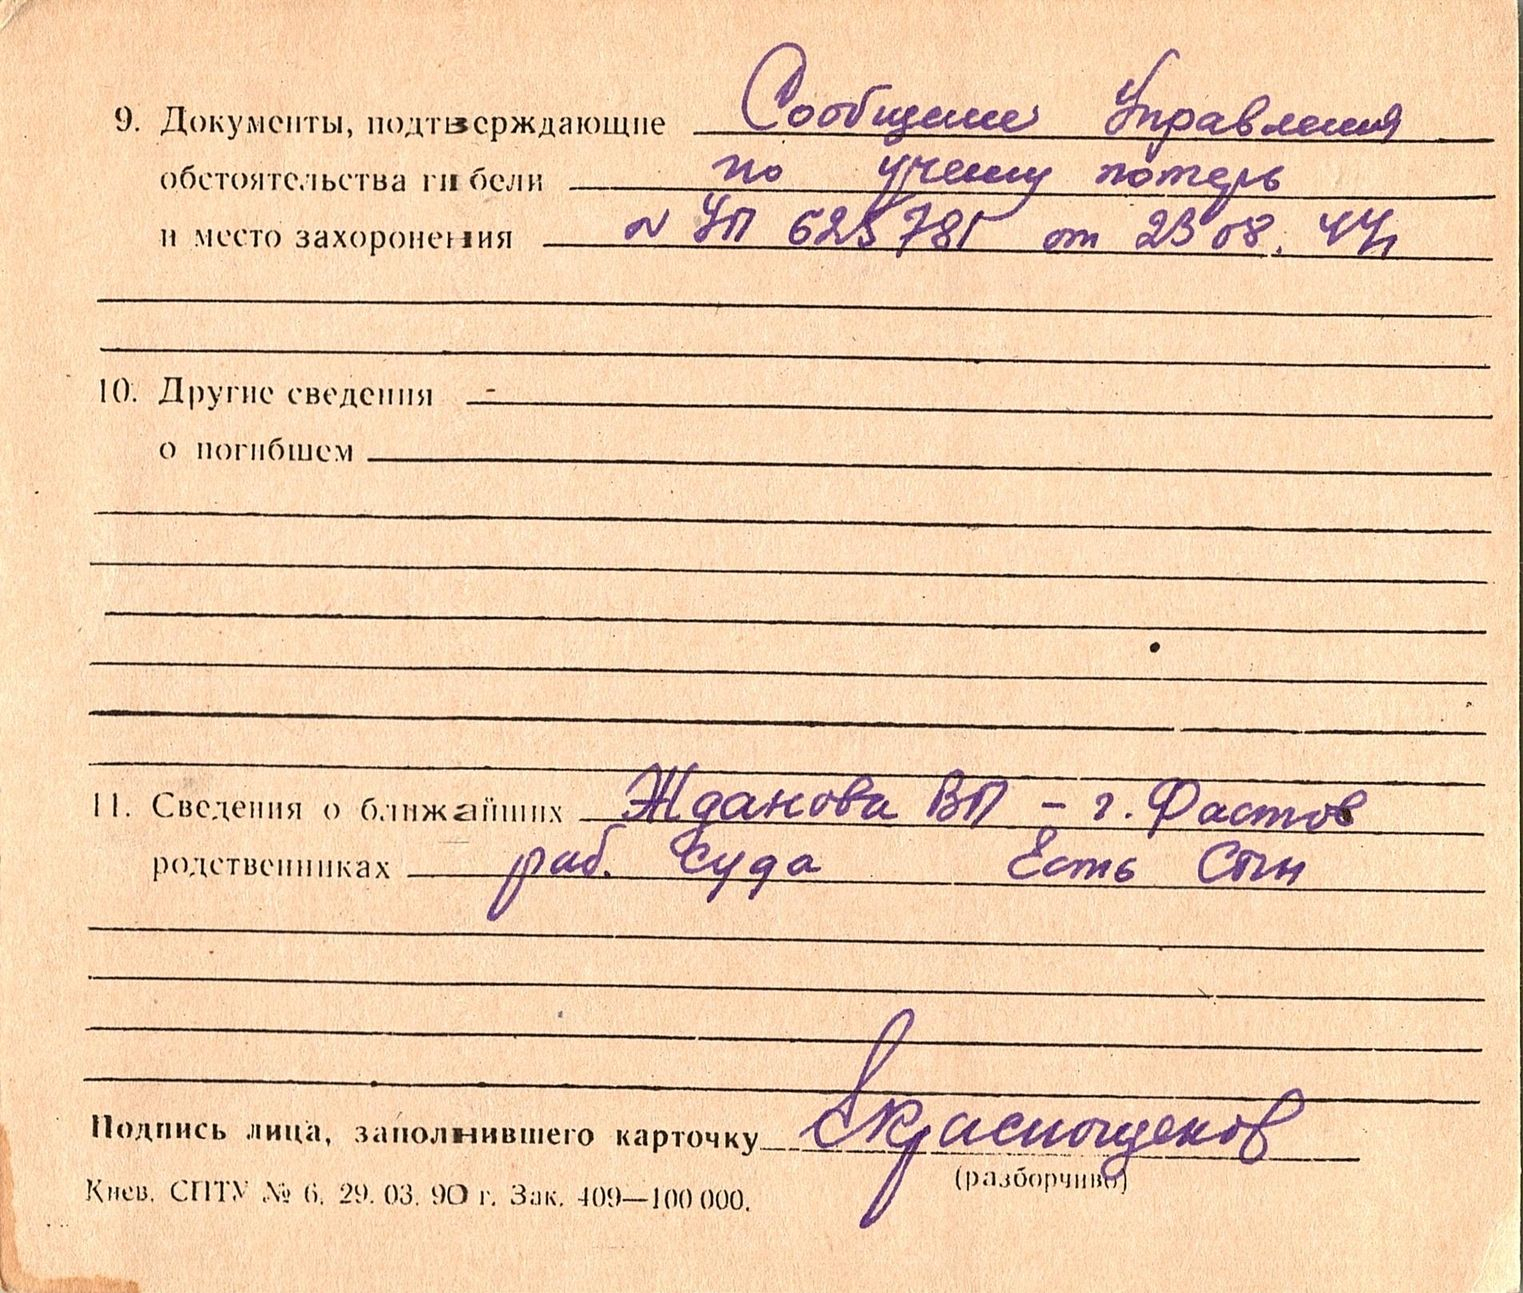 9. Документы, подтверждающие Сообщение Управления
обстоятельства гибели по учету потерь
и место захоронения N УП 623781 от 23 08. 44г
10. Другие сведения -
о погибшем
11. Сведения о ближайших Жданова ВП - г. Фастов
родственниках раб. суда Есть Сын
Подпись лица, заполнившего карточку Краснощеков
(разборчиво)
Киев. СПТУ № 6. 29. 03. 90 г. Зак. 409—100 000.